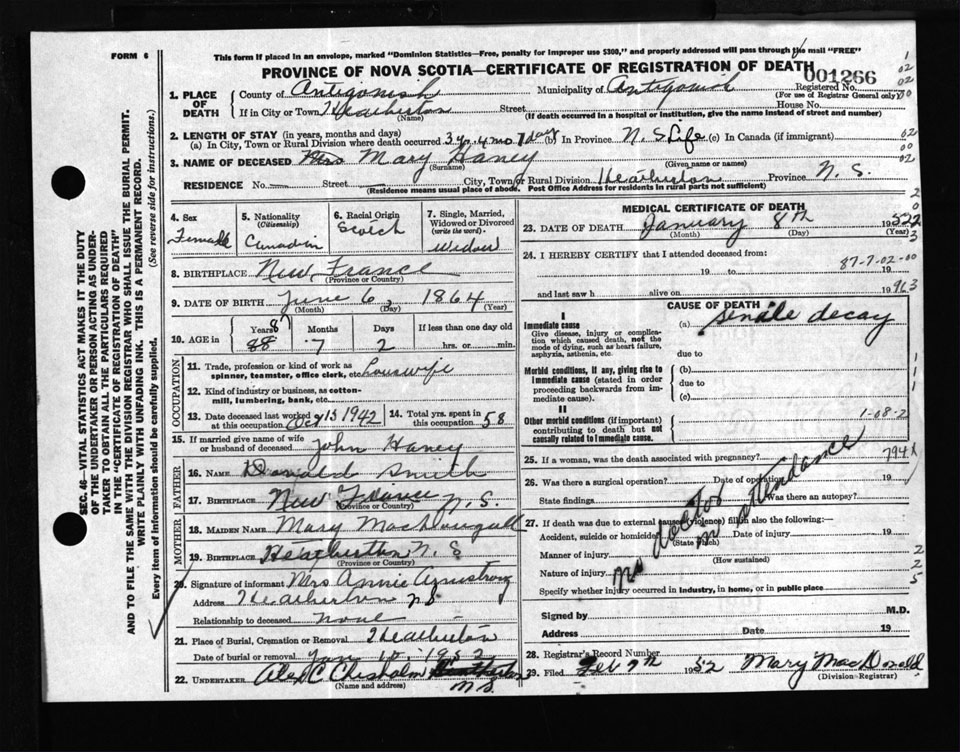 FORM 6
This form if placed in an envelope, marked "Dominion Statistics—Free, penalty for improper use $300," and properly addressed will pass through the mail "FREE"
PROVINCE OF NOVA SCOTIA—CERTIFICATE OF REGISTRATION OF DEATH
001266
Registered No.
(For use of Registrar General only)
1. PLACE OF DEATH
County of Antigonish Municipality of Antigonish
If in City or Town Heatherton Street House No.
(Name) (If death occurred in a hospital or institution, give the name instead of street and number)
2. LENGTH OF STAY (in years, months and days)
(a) In City, Town or Rural Division where death occurred 3 yr. 4 mo 7 days (b) In Province N. S. Life (c) In Canada (if immigrant)
3. NAME OF DECEASED Mrs Mary Haney
(Surname) (Given name or names)
RESIDENCE No. Street City, Town or Rural Division Heatherton Province N. S.
(Residence means usual place of abode. Post Office Address for residents in rural parts not sufficient)
4. Sex Female
5. Nationality (Citizenship) Canadian
6. Racial Origin Scotch
7. Single, Married, Widowed or Divorced (write the word) Widow
8. BIRTHPLACE New France
(Province or Country)
9. DATE OF BIRTH June 6, 1864
(Month) (Day) (Year)
10. AGE in
Years 87 88
Months 7
Days 2
If less than one day old
hrs. or min.
OCCUPATION
11. Trade, profession or kind of work as spinner, teamster, office clerk, etc. Housewife
12. Kind of industry or business, as cotton-mill, lumbering, bank, etc.
13. Date deceased last worked at this occupation Oct 15 1942
14. Total yrs. spent in this occupation 58
15. If married give name of wife or husband of deceased John Haney
FATHER
16. NAME Donald Smith
17. BIRTHPLACE New France N. S.
(Province or Country)
MOTHER
18. MAIDEN NAME Mary MacDougall
19. BIRTHPLACE Heatherton N. S
(Province or Country)
20. Signature of informant Mrs Annie Armstrong
Address Heatherton NS
Relationship to deceased none
21. Place of Burial, Cremation or Removal Heatherton
Date of burial or removal Jan 10 1952
22. UNDERTAKER Alex C Chisholm Heatherton
(Name and address) N S.
MEDICAL CERTIFICATE OF DEATH
23. DATE OF DEATH January 8th 1952
(Month) (Day) (Year)
24. I HEREBY CERTIFY that I attended deceased from:
87-7-02-00
19 to 19
and last saw h alive on 19
CAUSE OF DEATH
I
Immediate cause
Give disease, injury or complication which caused death, not the mode of dying, such as heart failure, asphyxia, asthenia, etc.
(a) Senile decay
due to
Morbid conditions, if any, giving rise to immediate cause (stated in order proceeding backwards from immediate cause).
(b)
due to
(c)
II
Other morbid conditions (if important) contributing to death but not causally related to immediate cause.
1-08-2
25. If a woman, was the death associated with pregnancy? 794
26. Was there a surgical operation? Date of operation 19
State findings Was there an autopsy?
No doctor in attendance
27. If death was due to external causes (violence) fill in also the following:—
Accident, suicide or homicide Date of injury 19
(State which)
Manner of injury
(How sustained)
Nature of injury
Specify whether injury occurred in industry, in home, or in public place
Signed by M.D.
Address Date 19
28. Registrar's Record Number
29. Filed Feb 7th 1952 Mary MacDonald
(Division Registrar)
SEC. 46—VITAL STATISTICS ACT MAKES IT THE DUTY
OF THE UNDERTAKER OR PERSON ACTING AS UNDER-
TAKER TO OBTAIN ALL THE PARTICULARS REQUIRED
IN THE "CERTIFICATE OF REGISTRATION OF DEATH"
AND TO FILE THE SAME WITH THE DIVISION REGISTRAR WHO SHALL ISSUE THE BURIAL PERMIT.
WRITE PLAINLY WITH UNFADING INK. THIS IS A PERMANENT RECORD.
Every item of Information should be carefully supplied. (See reverse side for instructions.)